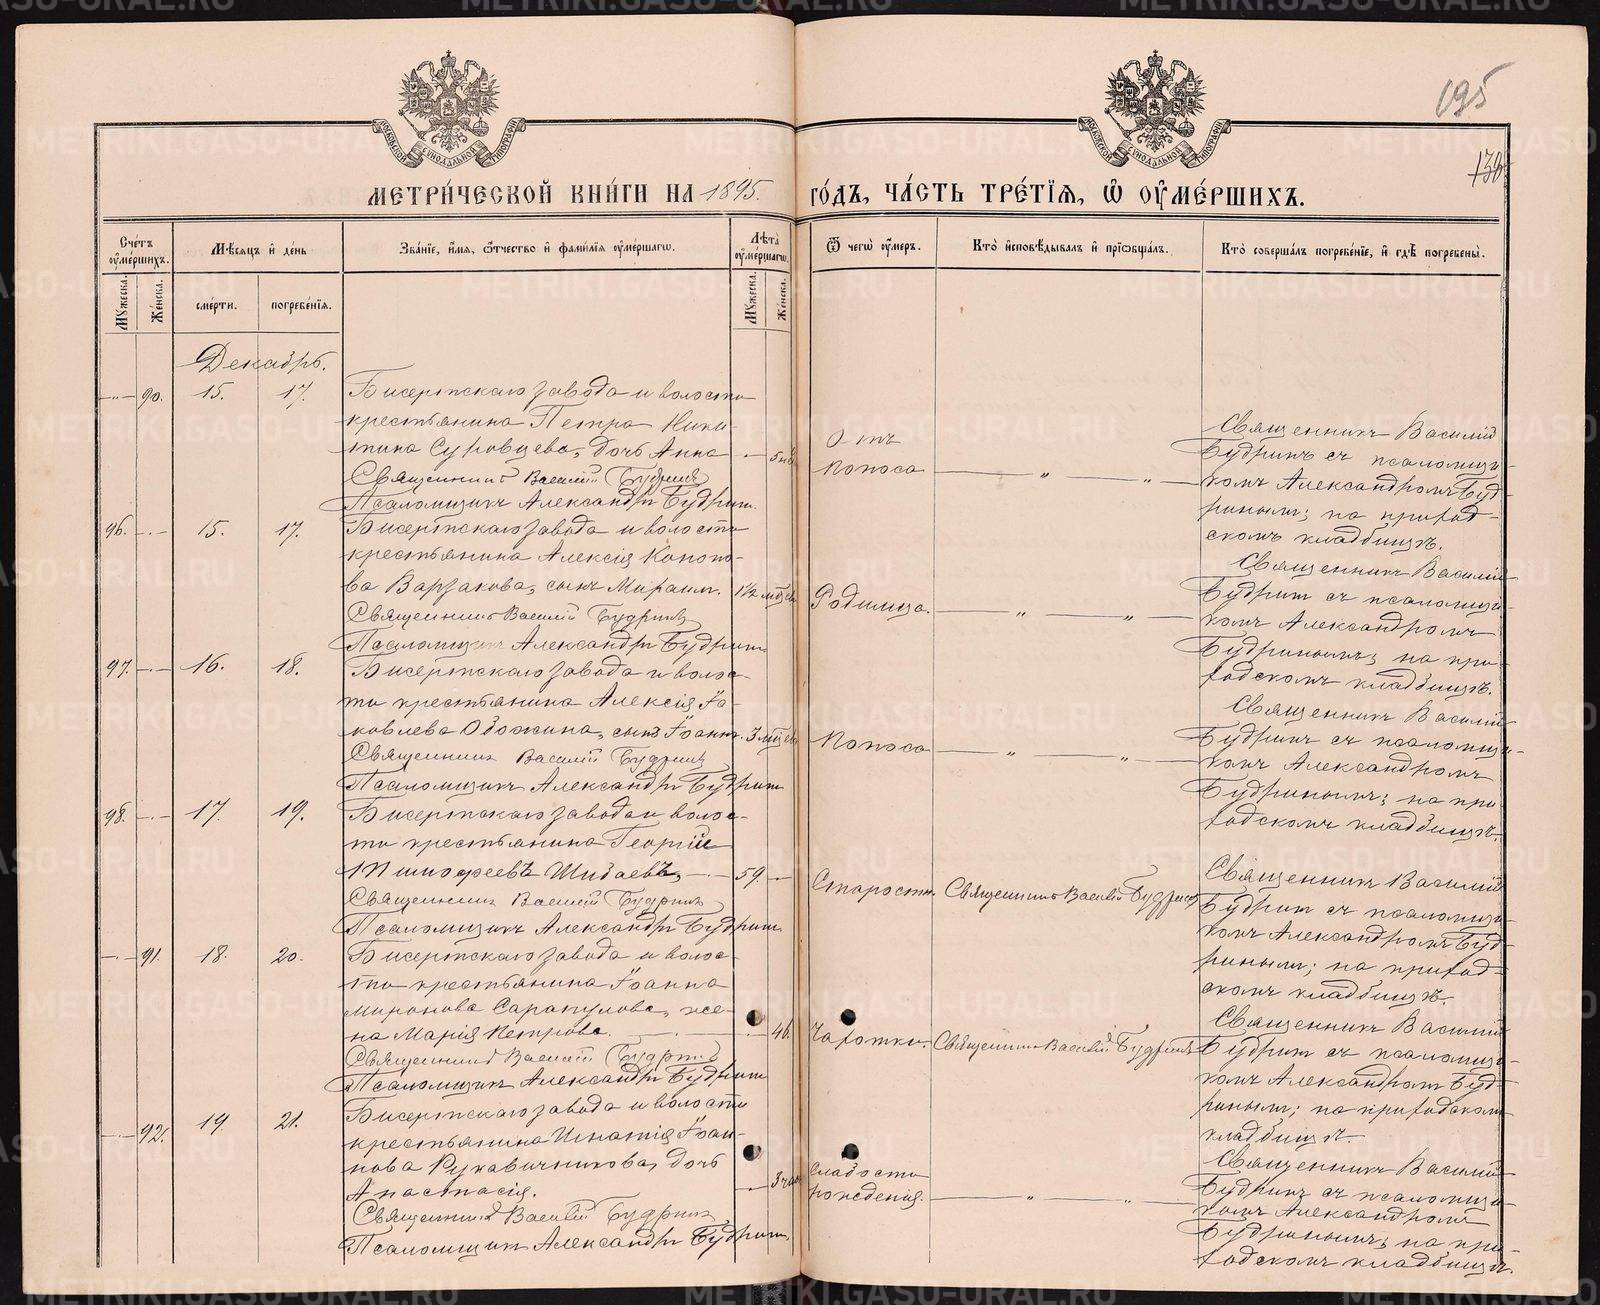 195
130
МОСКОВСКОЙ СѴНОДАЛЬНОЙ ТИПОГРАФІИ
МОСКОВСКОЙ СѴНОДАЛЬНОЙ ТИПОГРАФІИ
МЕТРИ́ЧЕСКОЙ КНИ́ГИ НА 1895. ГО́ДЪ, ЧА́СТЬ ТРЕ́ТІѦ, Ѡ҆ ОУ҆МЕ́РШИХЪ.
Сче́тъ оу҆ме́ршихъ.
Мѣ́сѧцъ и҆ де́нь
Зва́нїе, и҆́мѧ, ѻ҆́тчество и҆ фами́лїѧ оу҆ме́ршагѡ.
Лѣ́та оу҆ме́ршагѡ.
Ѿ чегѡ̀ оу҆́меръ.
Кто̀ и҆сповѣ́дывалъ и҆ прїѡбща́лъ.
Кто̀ соверша́лъ погребе́нїе, и҆ гдѣ̀ погребены̀.
Мꙋ́жеска.
Же́нска.
сме́рти.
погребе́нїѧ.
Мꙋ́жеска.
Же́нска.
Декабрь.
90. 15. 17. Бисертскаго завода и волости
крестьянина Петра Ники-
тина Суровцева, дочь Анна
Священникъ Василій Будринъ
Псаломщикъ Александръ Будринъ.
Отъ
поноса
Священникъ Василій
Будринъ съ псаломщи-
комъ Александромъ Буд-
ринымъ; на приход-
скомъ кладбищѣ.
96. 15. 17. Бисертскаго завода и волости
крестьянина Алексія Кононо-
ва Варзакова, сынъ
Священникъ Василій Будринъ
Псаломщикъ Александръ Будринъ
1½ мѣсяц
Родимца.
Священникъ Василій
Будринъ съ псаломщи-
комъ Александромъ
Будринымъ; на при-
ходскомъ кладбищѣ.
97. 16. 18. Бисертскаго завода и волос-
ти крестьянина Алексія Іа-
ковлева сынъ Іоаннъ.
Священникъ Василій Будринъ
Псаломщикъ Александръ Будринъ
3 мѣсяц
Поноса
Священникъ Василій
Будринъ съ псаломщи-
комъ Александромъ
Будринымъ; на при-
ходскомъ кладбищѣ.
98. 17. 19. Бисертскаго завода и волос-
ти крестьянина Георгій
Тимофеевъ Шибаевъ,
59.
Священникъ Василій Будринъ
Псаломщикъ Александръ Будринъ
Старости.
Священникъ Василій Будринъ
Священникъ Василій
Будринъ съ псаломщи-
комъ Александромъ Буд-
ринымъ; на приход-
скомъ кладбищѣ.
91. 18. 20. Бисертскаго завода и волос-
ти крестьянина Іоанна
Миронова Сарапулова, же-
на Марія Петрова.
46.
Священникъ Василій Будринъ
Псаломщикъ Александръ Будринъ
Чахотки.
Священникъ Василій Будринъ
Священникъ Василій
Будринъ съ псаломщи-
комъ Александромъ Буд-
ринымъ; на приходскомъ
кладбищѣ.
92. 19. 21. Бисертскаго завода и волости
крестьянина Игнатія Іоан-
нова Рукавичникова, дочь
Анастасія.
Священникъ Василій Будринъ
Псаломщикъ Александръ Будринъ.
3 час
Слабости
рожденія.
Священникъ Василій
Будринъ съ псаломщи-
комъ Александромъ
Будринымъ; на при-
ходскомъ кладбищѣ.
METRIKI.GASO-URAL.RU